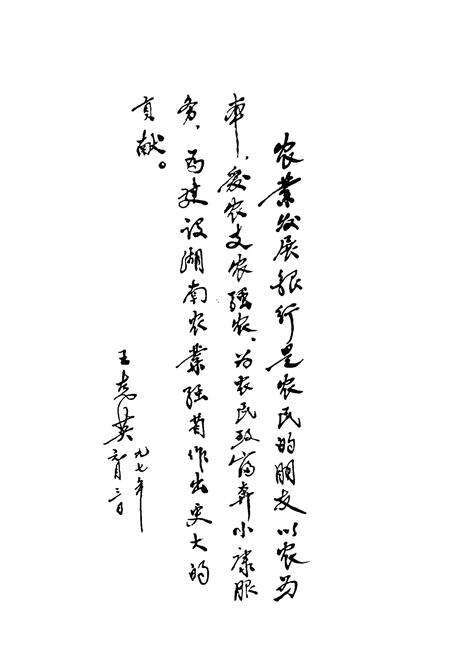 农业发展银行是农民的朋友以农为
本,爱农支农强农,为农民致富奔小康服
务,为建设湖南农业强省作出更大的
贡献。
王志英
九七年
元月三日